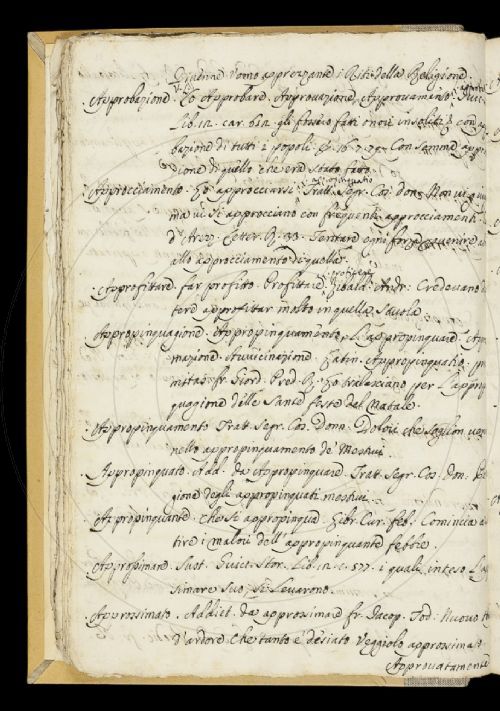 Uomo apprezzante i Riti della Religione.
Approbazione. Lo Approbare. Approvazione, Approvamento.
Lib. 12. car. 612. gli fossero fatti onori insoliti, e con
bazione di tutti i popoli. E. 16. 7. 75. Con somma appro
zione di quello che era stato fatto.
Approcciamento. Lo approcciarsi. Tratt. Segr. Cos. don.
ma vi si approcciano con frequenti approcciamenti.
d'Arez. Letter. R. 33. Tentare ogni forza venire
allo approcciamento di quella.
Approfittare. far profitto. Profittare. Zibald. Andr: Credevano
approfittar molto in quella
Appropinquagione. Appropinquamento. L'appropinquare.
mazione. Avvicinazione. Latin. Appropinquatio.
fr. Giord. Pred. R. Lo tralasciano per l'approp
quagione delle Sante feste del Natale.
Appropinquamento. Tratt. Segr. Cos. Donn. che soglion ven
nello appropinquamento de' Mestrui.
Appropinquato. Add. da Appropinquare. Tratt. Segr. Cos. don.
gione degli appropinquati mestrui.
Appropinquante. che si appropinqua. Libr. Cur. feb. Comincia a
tire i malori dell'appropinquante febbre.
Lib. 12. c. 577. i quali inteso
simare suo, si levarono.
Approssimato. Addiet. da approssimare. fr. Jacop. Tod: Nuovo
D'ardore che tanto è desiato Veggiolo approssimato
Approvatamente